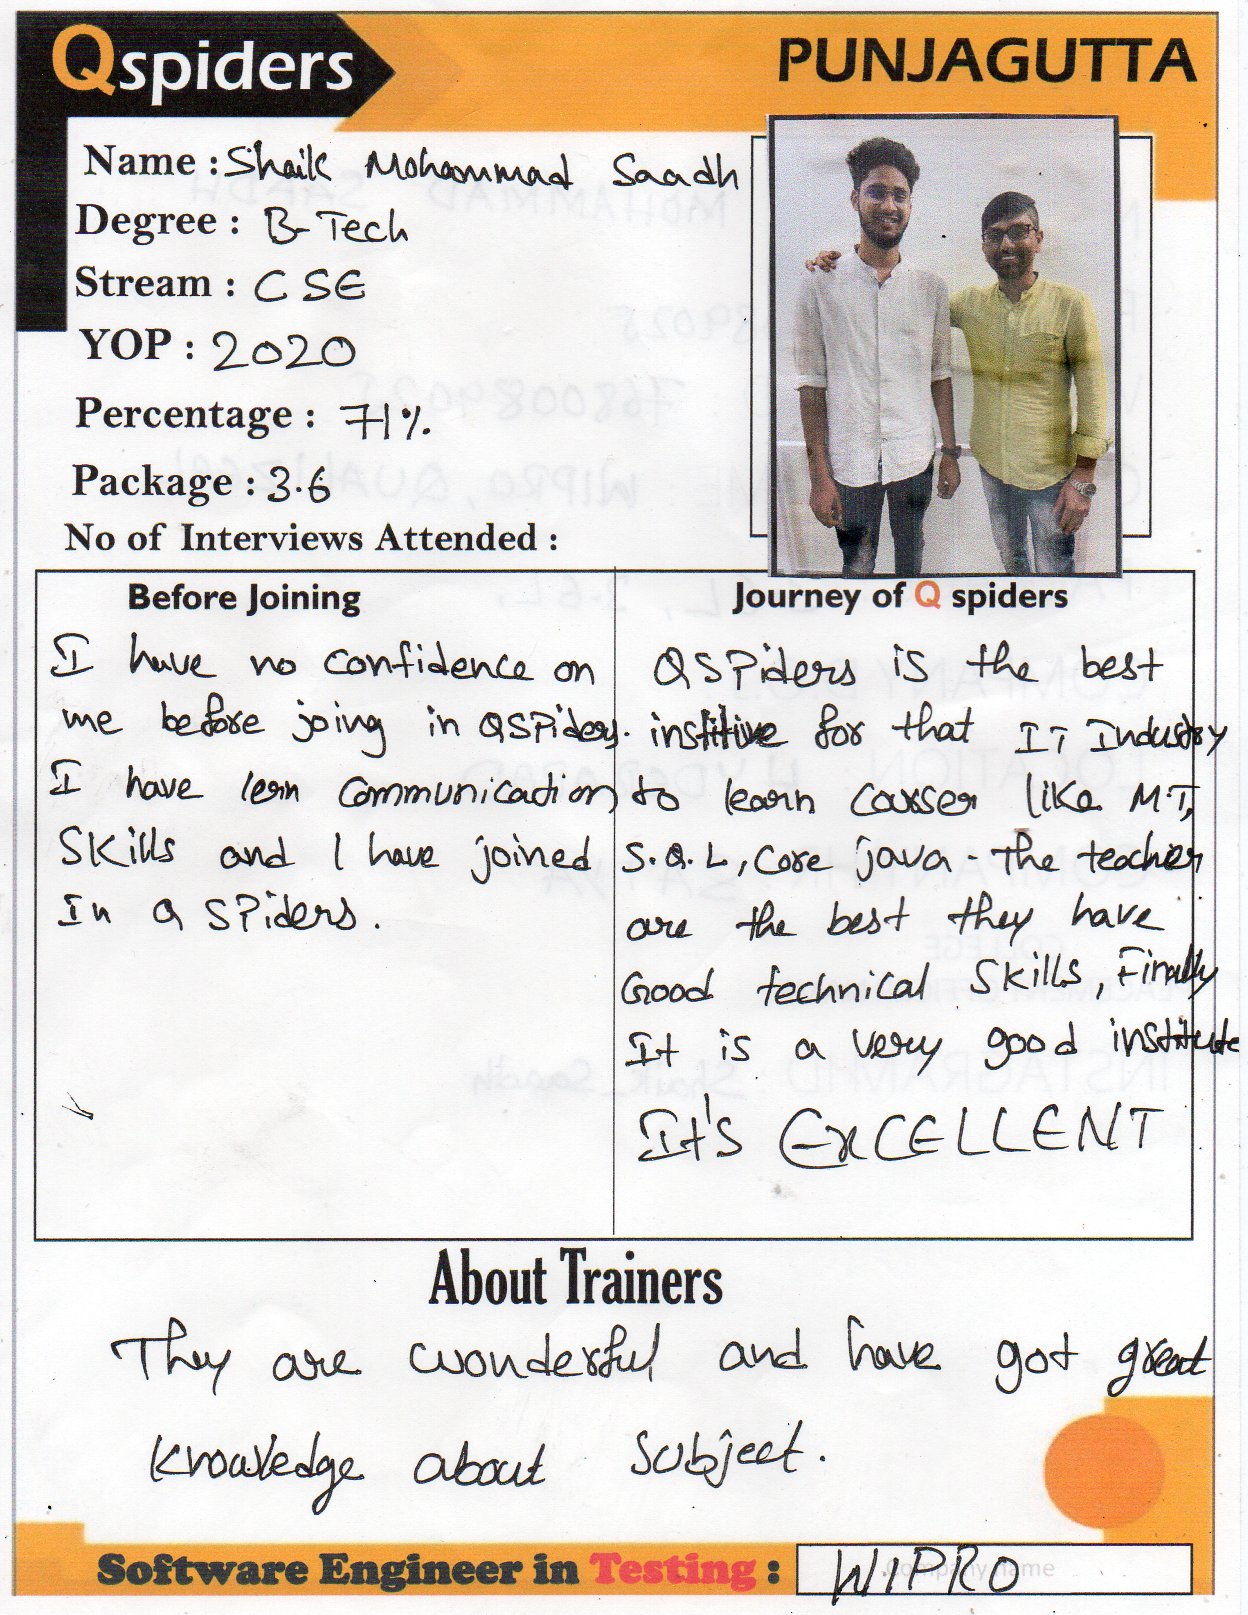 Qspiders
PUNJAGUTTA
Name : Shaik Mohammad Saadh
Degree : B-Tech
Stream : CSE
YOP : 2020
Percentage : 71%
Package : 3.6
No of Interviews Attended :
Before Joining
I have no confidence on
me before joing in QSPiders.
I have lern communication
Skills and I have joined
In Q SPiders.
Journey of Q spiders
QSPiders is the best
for that IT Industry
to learn courser like M.T,
S.Q.L, Core java - The teacher
are the best they have
Good technical Skills, Finally
It is a very good institute
It's ExCELLENT
About Trainers
They are wonderful and have got great
knowledge about Subject.
Software Engineer in Testing : WIPRO
Company name